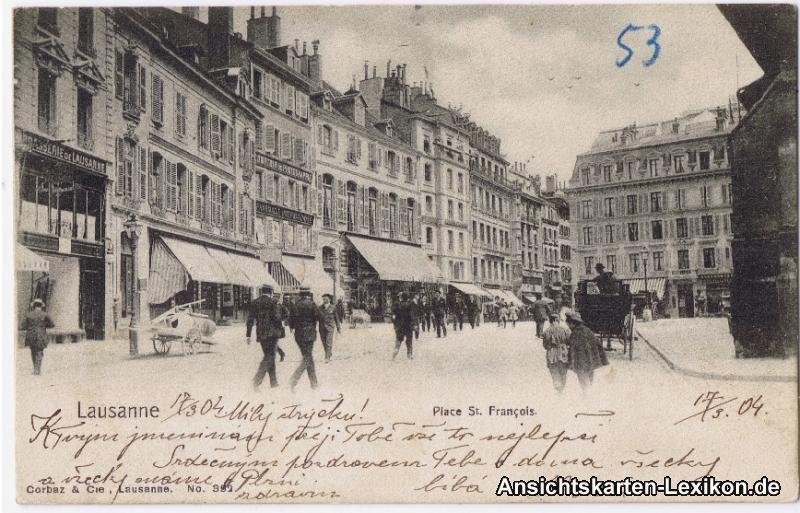 53
BRASSERIE DE LAUSANNE
Lausanne 17/3 04 Milý strýčku!
Place St. François.
17/3. 04.
K Tvým jmeninám přeji Tobě vše to nejlepší
Srdečným pozdravem Tebe i doma všecky
a všecky známé v Plzni líbá
zdravím
Corbaz & Cie., Lausanne. No.
Ansichtskarten-Lexikon.de